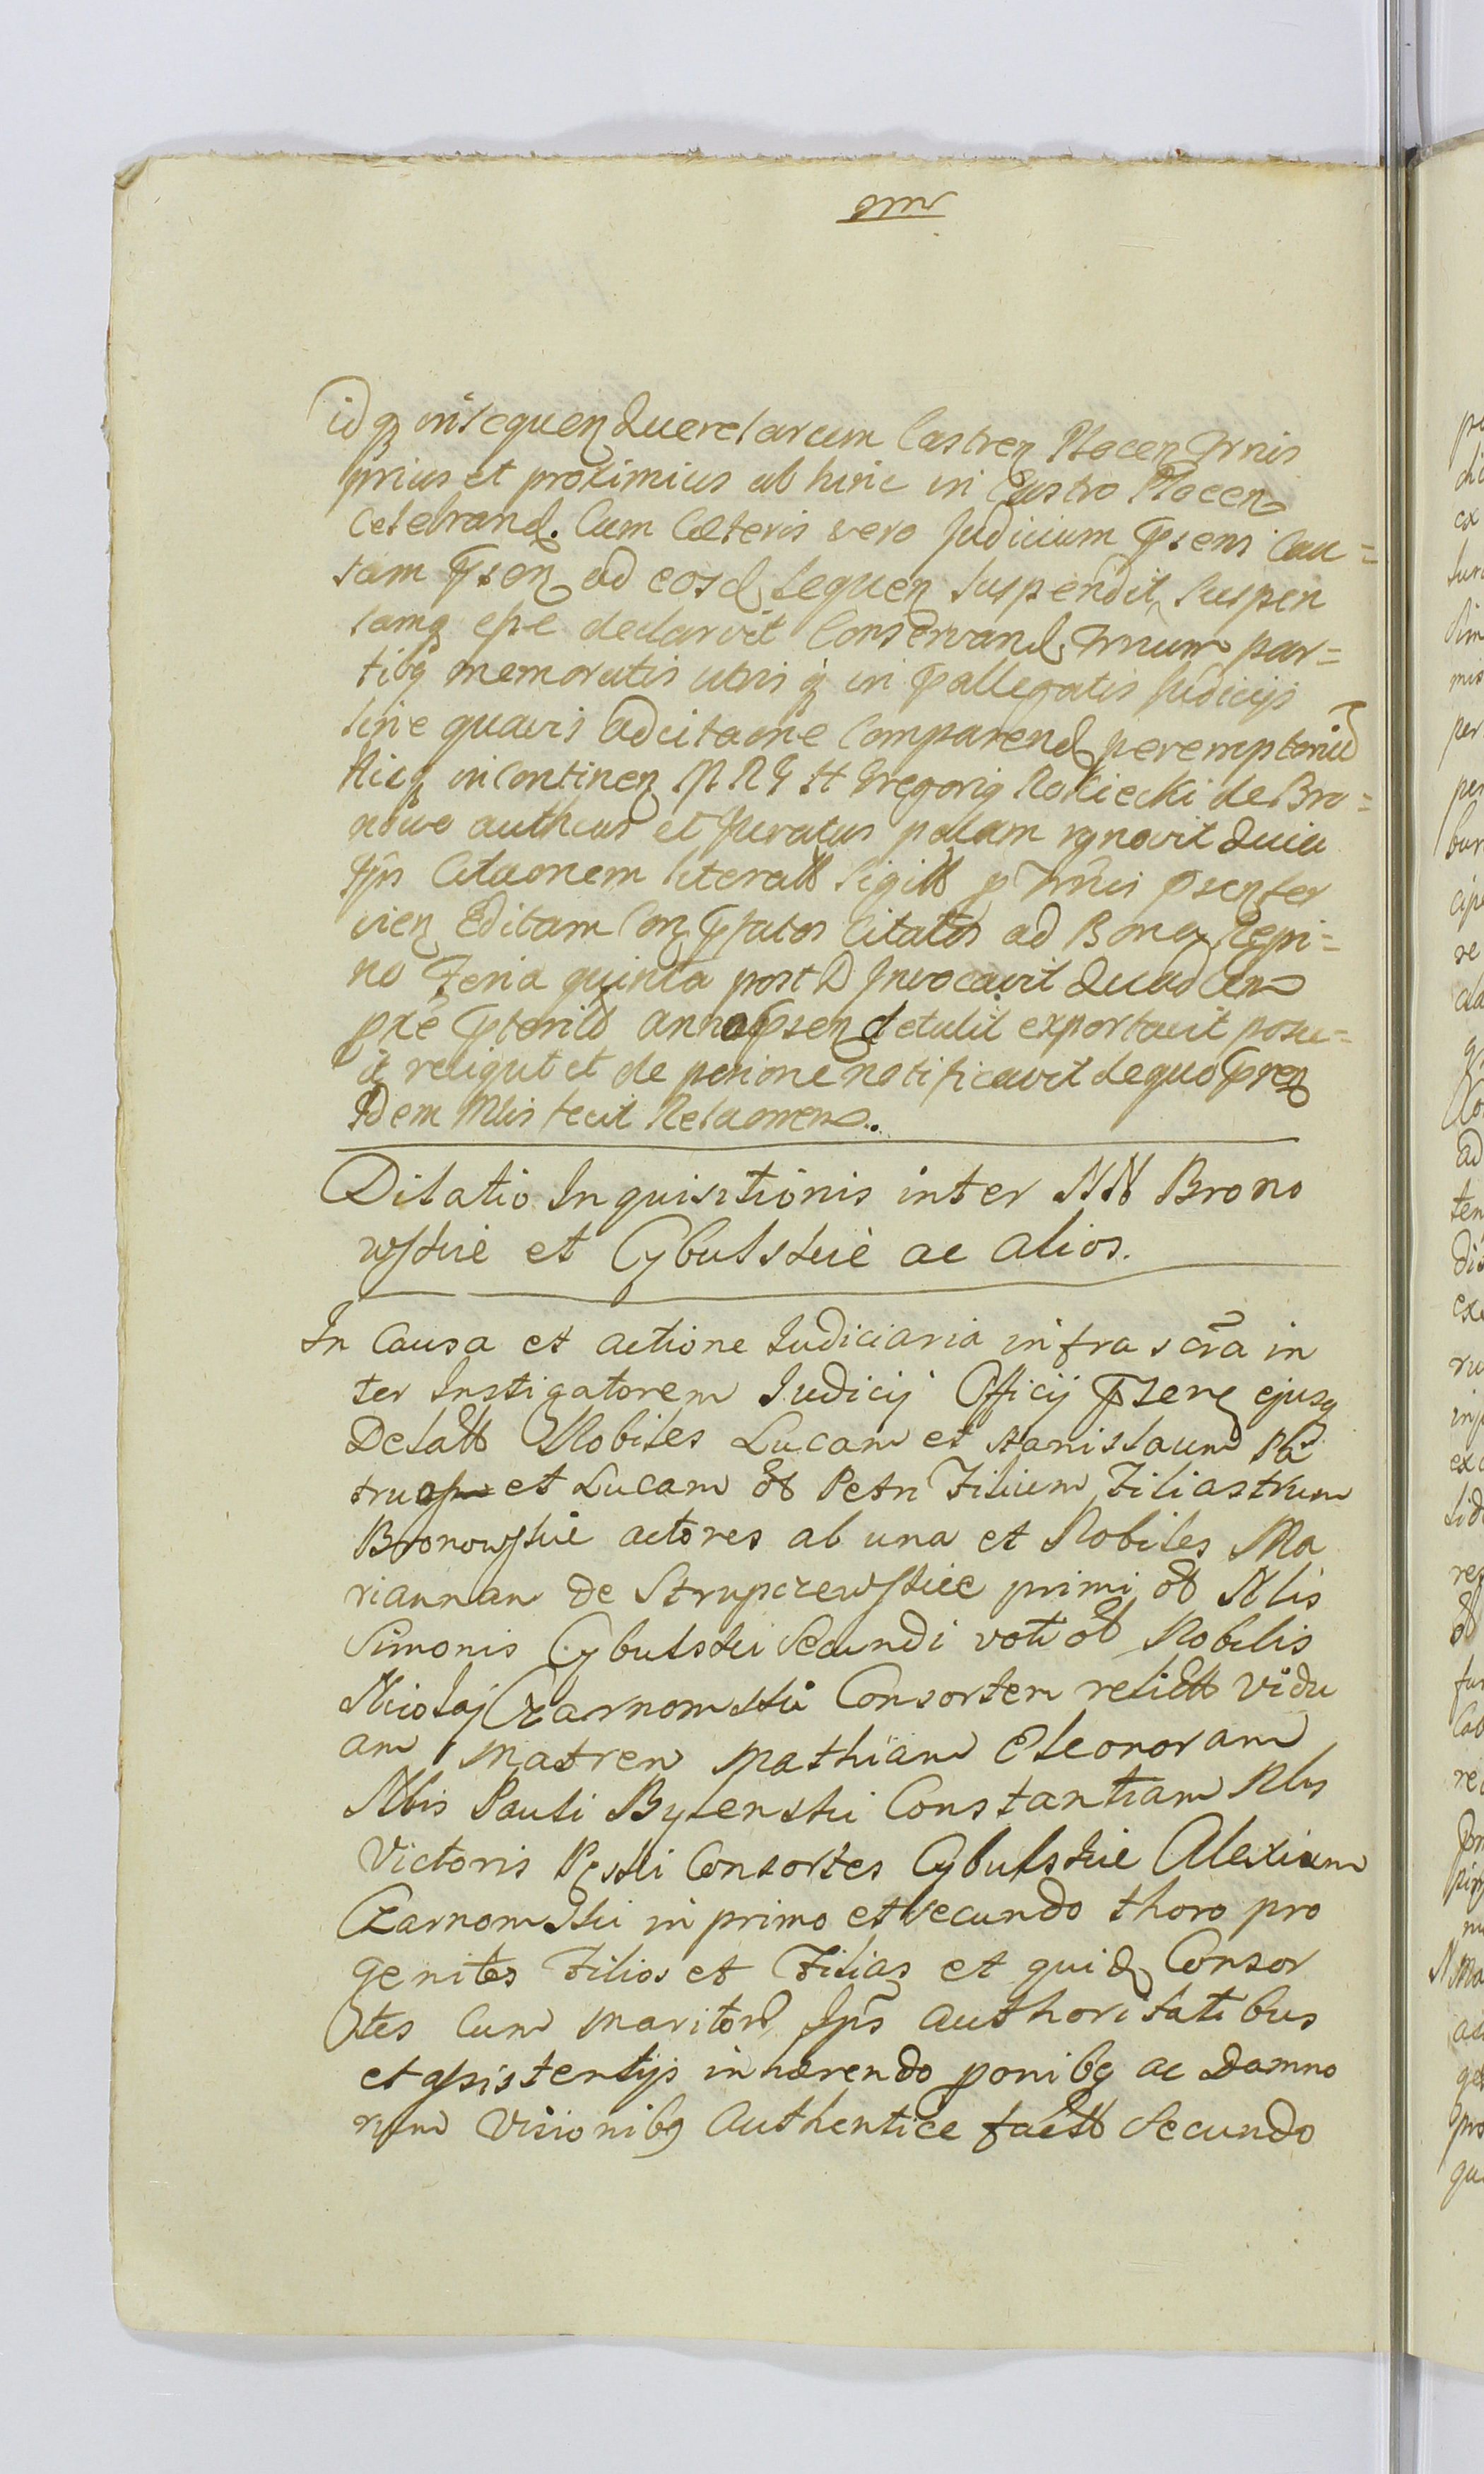 idq insequen Querelarum Castren Plocen Trnis
prius et proximius ab hinc in Castro Plocen
Celebrand. Cum Cæteris vero Judicium Psens Cau=
sam Psen ad eosd sequen suspendit, suspen
samq esse declaravit Conservand Trnum par=
tibq memoratis utris q in Pallegatis Judicijs
sine quavis adcitaone Comparend peremptoriū
Hicq incontinen M R G H Gregoriq Rokiecki de Bro=
nowo authcus et Juratus palam rgnovit Quia
Jps Citaonem literatt Sigitt p Trnis Psen ser
vien Editam Con Pfatos Citatos ad Bona Repi=
no Feria quinta post D Invocavit Quad
pxe Pterito anno Psen detulit exportavit posu=
it reliquit et de ponione notificavit de quo Pren
Idem Nlis fecit Relaonem.
Dilatio Inquisitionis inter NN Brono
wskie et Cybulskie ac alios.
In Causa et actione Judiciaria infra scrā in
ter Instigatorem Judicij Officij Psen ejusq
Delatt Nobiles Lucam et Stanislaum Pa
truos et Lucam ott Petri Filium Filiastrum
Bronowskie actores ab una et Nobiles Ma
riannam de Strupczewskie primi ott Nlis
Simonis Cybulski Secundi voti ott Nobilis
Nicolaj Czarnomski Consortem relictt vidu
am Matrem Mathiam Eleonoram
Nlis Pauli Bylenski Constantiam Nlis
Victoris Peski Consortes Cybulskie Alexium
Czarnomski in primo et secundo thoro pro
genites Filios et Filias et quid Consor
tes Cum maritorū Jps authoritatibus
et assistentijs inhærendo ponibq ac Damno
rum Visionibq Authentice factt Secundo